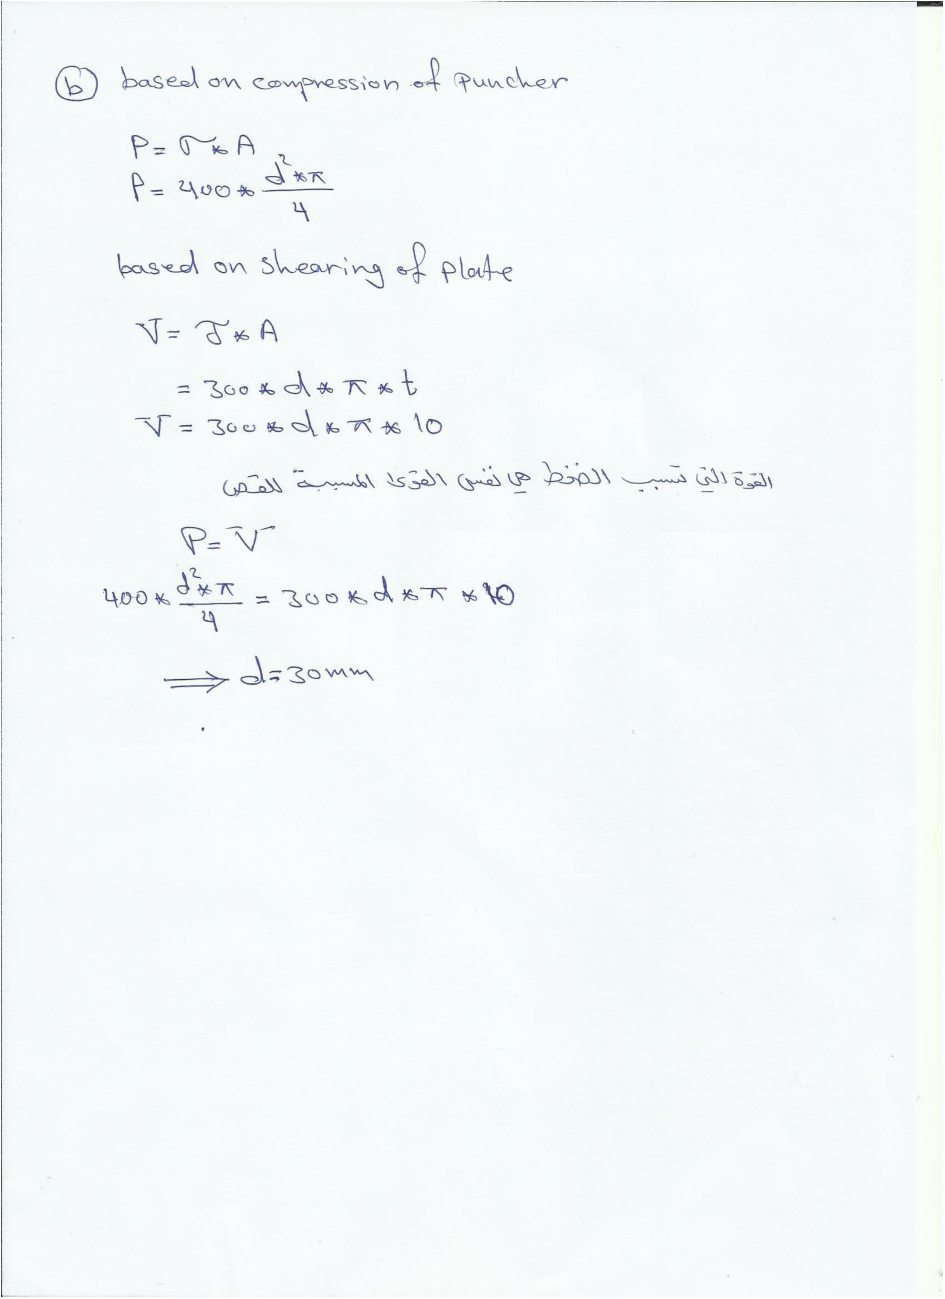 b based on compression of Puncher
P = σ * A
P = 400 * d² * π / 4
based on shearing of plate
V = τ * A
= 300 * d * π * t
V = 300 * d * π * 10
القوة التي تسبب الضغط هي نفس القوى المسببة للقص
P = V
400 * d² * π / 4 = 300 * d * π * 10
⟹ d = 30 mm